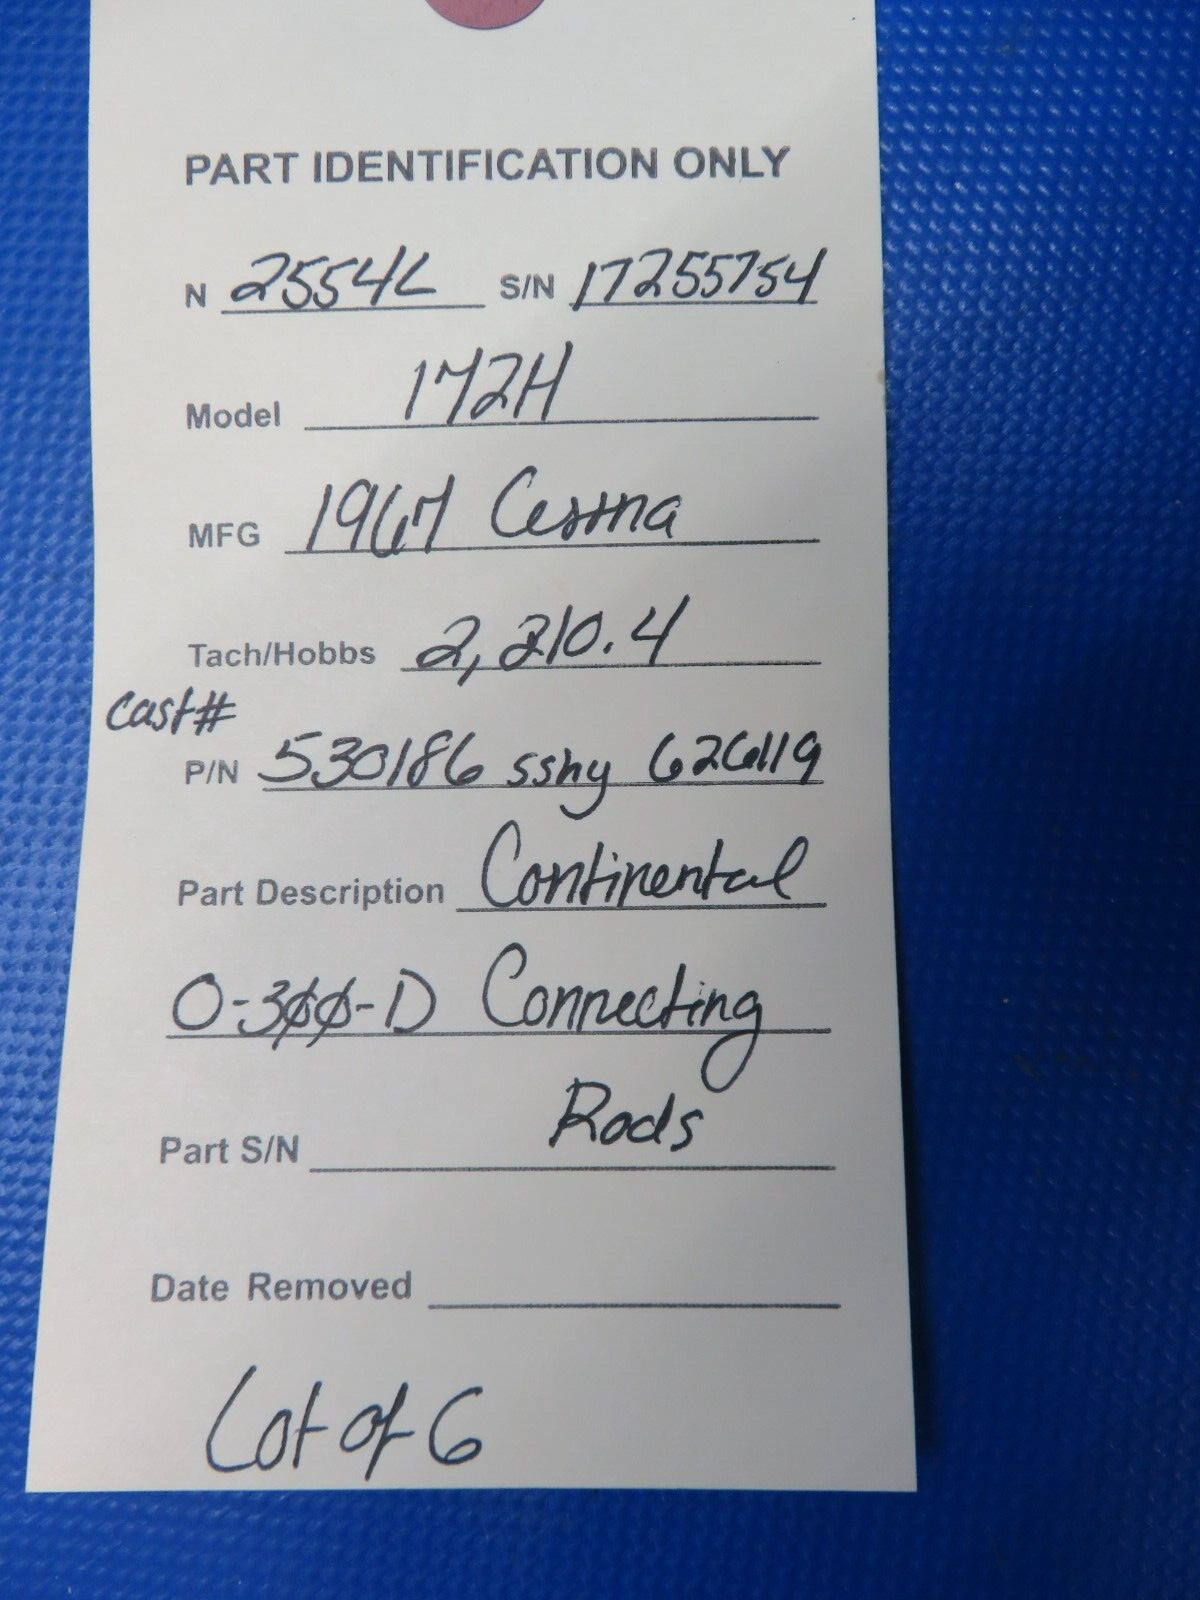 PART IDENTIFICATION ONLY
N 2554L S/N 17255754
Model 172H
MFG 1967 Cessna
Tach/Hobbs 2,210.4
Cast#
P/N 530186 ssny 626119
Part Description Continental
O-300-D Connecting
Rods
Part S/N
Date Removed
Lot of 6